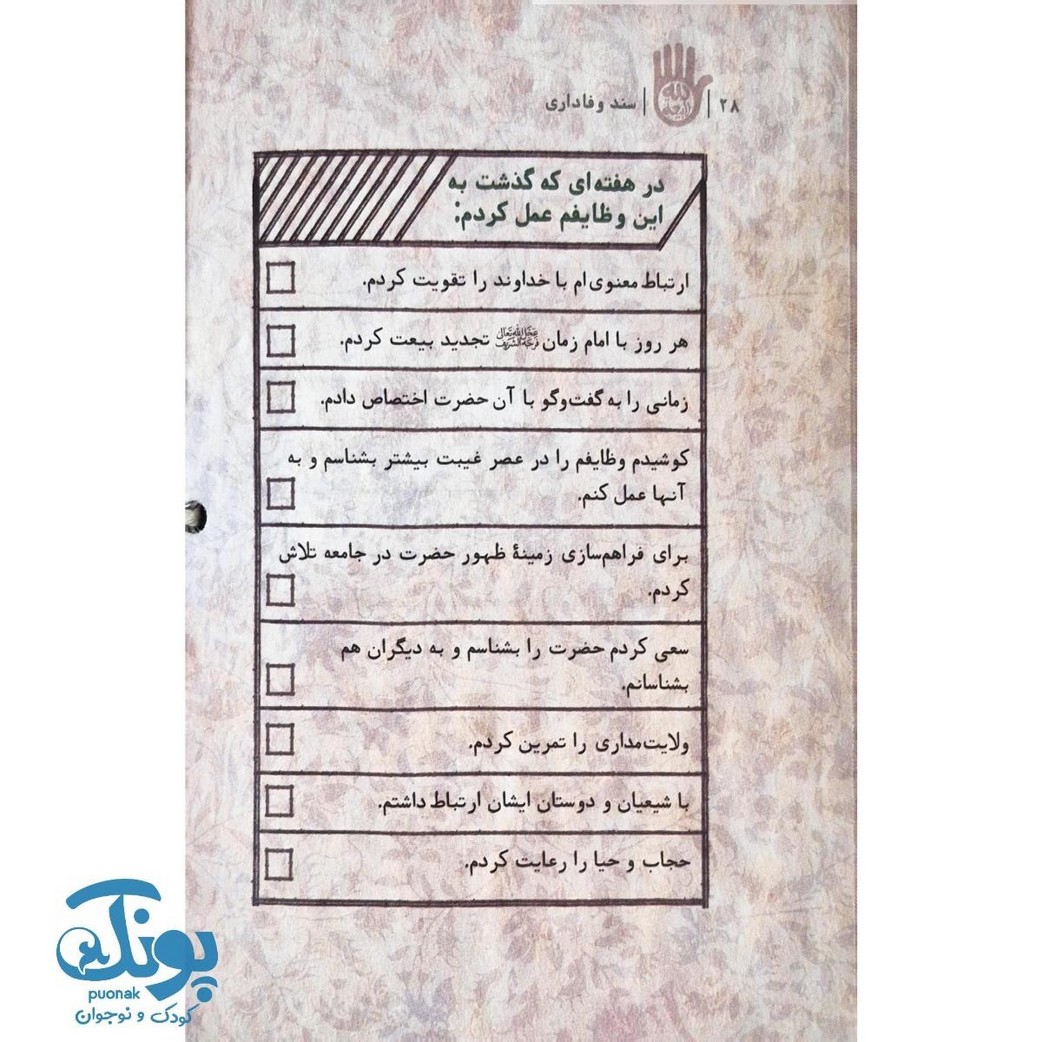 ۲۸ | سند وفاداری
در هفته‌ای که گذشت به
این وظایفم عمل کردم:
ارتباط معنوی‌ام با خداوند را تقویت کردم.
هر روز با امام زمان عجل‌الله‌تعالی‌فرجه‌الشریف تجدید بیعت کردم.
زمانی را به گفت‌وگو با آن حضرت اختصاص دادم.
کوشیدم وظایفم را در عصر غیبت بیشتر بشناسم و به
آنها عمل کنم.
برای فراهم‌سازی زمینهٔ ظهور حضرت در جامعه تلاش
کردم.
سعی کردم حضرت را بشناسم و به دیگران هم
بشناسانم.
ولایت‌مداری را تمرین کردم.
با شیعیان و دوستان ایشان ارتباط داشتم.
حجاب و حیا را رعایت کردم.
پونک
puonak
کودک و نوجوان